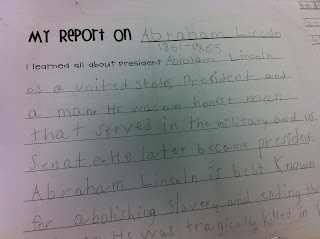 My Report on Abraham Lincoln
1861-1865
I learned all about President Abraham Lincoln
as a united states President and
a man. He was an honest man
that served in the military and us.
Senate. He later became president.
Abraham Lincoln is best known
for aboliching slavery and ending the
He was tragically killed in